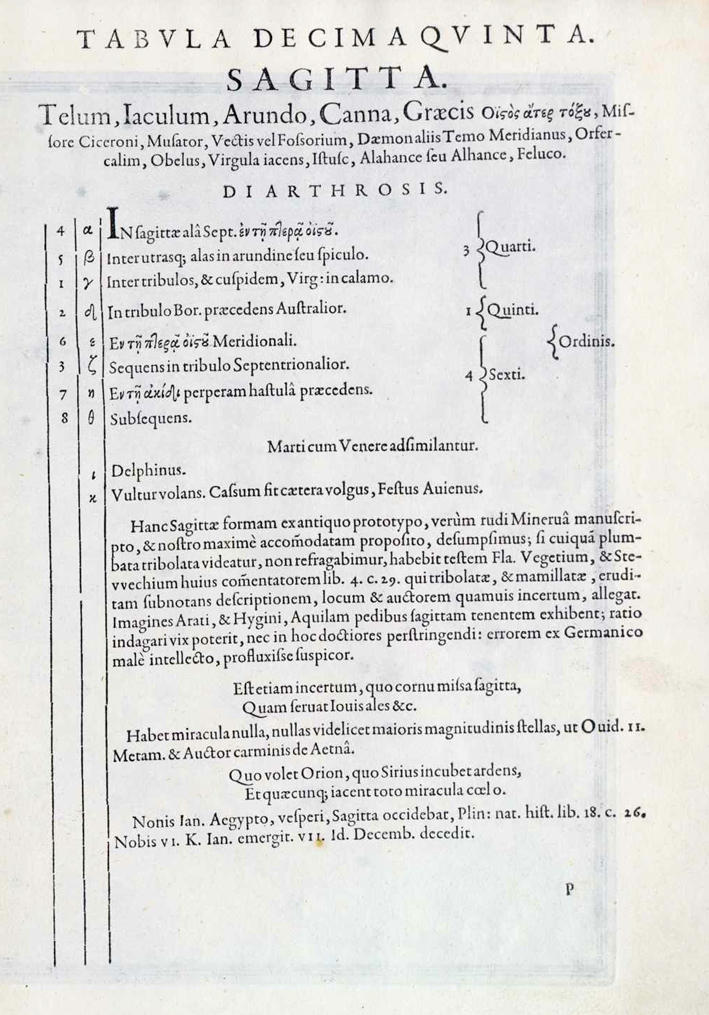 TABVLA DECIMAQVINTA.
SAGITTA.
Telum, Iaculum, Arundo, Canna, Græcis Οἰϛὸς ἄτερ τόξȣ, Miſ-
ſore Ciceroni, Muſator, Vectis vel Foſſorium, Dæmon aliis Temo Meridianus, Orfer-
calim, Obelus, Virgula iacens, Iſtuſc, Alahance ſeu Alhance, Feluco.
DIARTHROSIS.
4 α IN ſagittæ alâ Sept. ἐν τῇ πλερᾷ οἰϛȣ͂.
5 β Inter utrasq; alas in arundine ſeu ſpiculo.
3 { Quarti.
1 γ Inter tribulos, & cuſpidem, Virg: in calamo.
2 δ In tribulo Bor. præcedens Auſtralior.
1 { Quinti.
6 ε Εν τῇ πλερᾷ οἰϛȣ͂ Meridionali.
{ Ordinis.
3 ζ Sequens in tribulo Septentrionalior.
4 { Sexti.
7 η Εν τῇ ἀκίδι perperam haſtulâ præcedens.
8 θ Subſequens.
Marti cum Venere adſimilantur.
ι Delphinus.
κ Vultur volans. Caſſum ſit cætera volgus, Feſtus Auienus.
Hanc Sagittæ formam ex antiquo prototypo, verùm rudi Mineruâ manuſcri-
pto, & noſtro maximè accom̃odatam propoſito, deſumpſimus; ſi cuiquã plum-
bata tribolata videatur, non refragabimur, habebit teſtem Fla. Vegetium, & Ste-
vvechium huius com̃entatorem lib. 4. c. 29. qui tribolatæ, & mamillatæ, erudi-
tam ſubnotans deſcriptionem, locum & auctorem quamuis incertum, allegat.
Imagines Arati, & Hygini, Aquilam pedibus ſagittam tenentem exhibent; ratio
indagari vix poterit, nec in hoc doctiores perſtringendi: errorem ex Germanico
malè intellecto, profluxiſſe ſuſpicor.
Eſt etiam incertum, quo cornu miſsa ſagitta,
Quam ſeruat Iouis ales &c.
Habet miracula nulla, nullas videlicet maioris magnitudinis ſtellas, ut Ouid. 11.
Metam. & Auctor carminis de Aetnâ.
Quo volet Orion, quo Sirius incubet ardens,
Et quæcunq; iacent toto miracula cœlo.
Nonis Ian. Aegypto, veſperi, Sagitta occidebat, Plin: nat. hiſt. lib. 18. c. 26.
Nobis VI. K. Ian. emergit. VII. Id. Decemb. decedit.
P